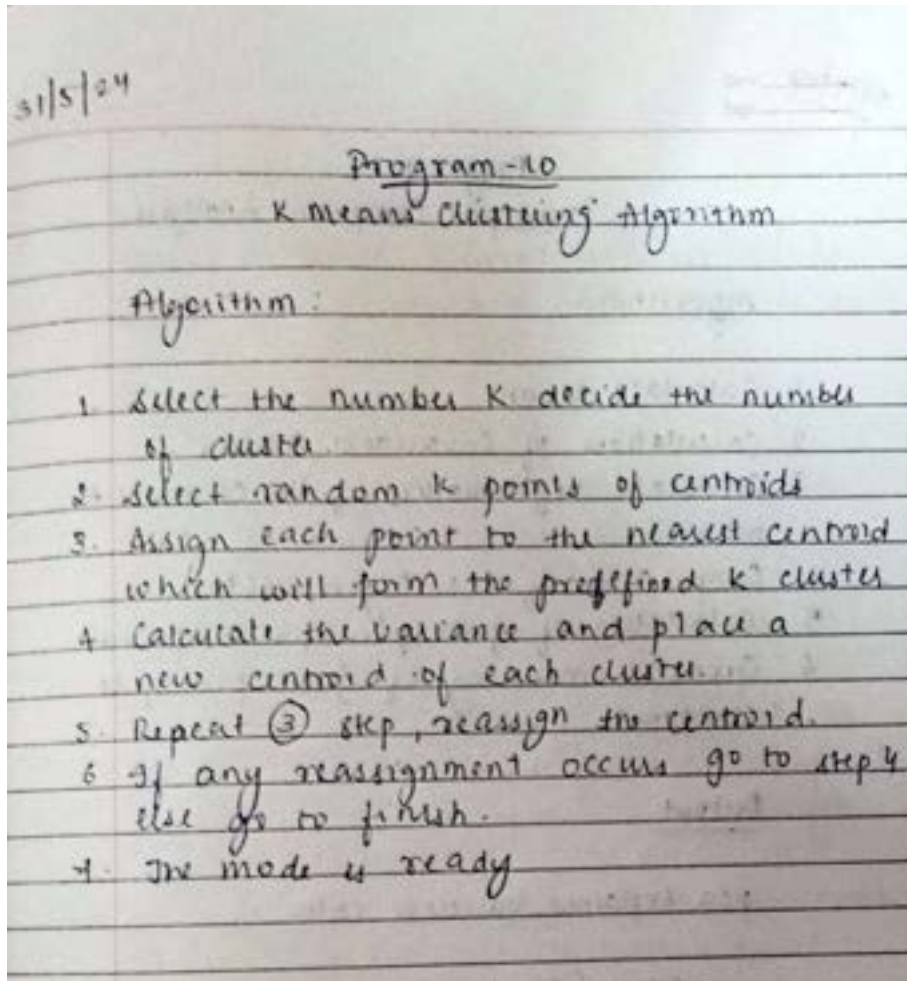 31/5/24
Program-10
K means Clustering Algorithm
Algorithm :
1 Select the number K decide the number
of cluster
2. Select random K points of centroids
3. Assign each point to the nearest centroid
which will form the predefined K cluster
4 Calculate the variance and place a
new centroid of each cluster.
5. Repeat ③ step, reassign the centroid.
6 If any reassignment occurs go to step 4
else go to finish.
7. The mode is ready